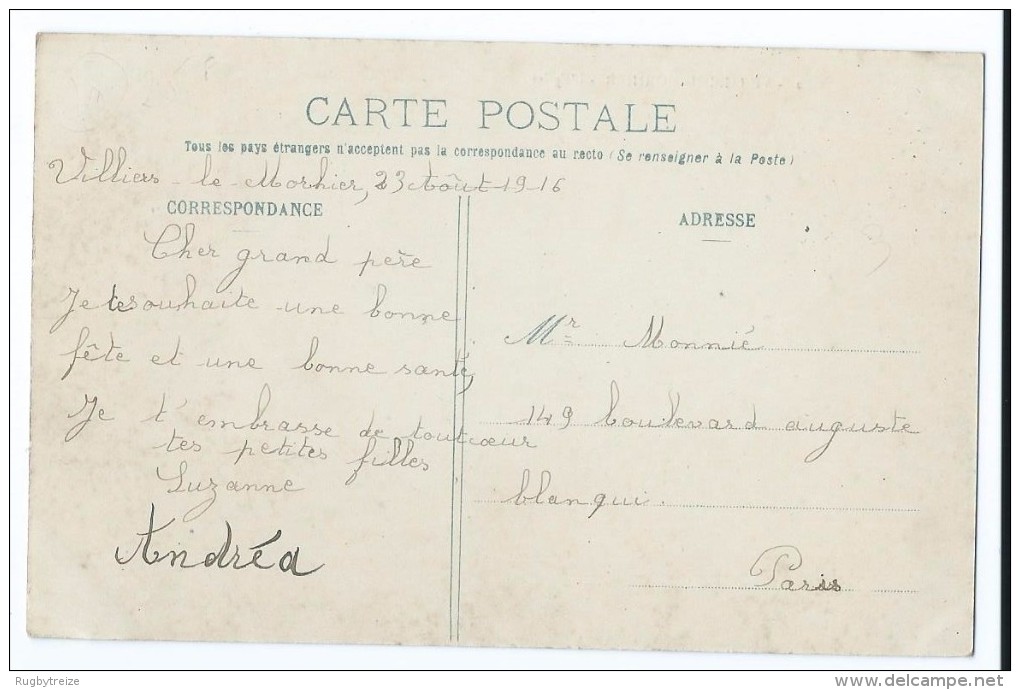 CARTE POSTALE
Tous les pays étrangers n'acceptent pas la correspondance au recto (Se renseigner à la Poste)
Villiers-le-Morhier, 23 Août 1916
CORRESPONDANCE
Cher grand père
Je te souhaite une bonne
fête et une bonne santé,
Je t'embrasse de tout cœur
tes petites filles
Suzanne
Andréa
ADRESSE
Mr Monnié
149 boulevard auguste
blanqui.
Paris
Rugbytreize
delcampe.net